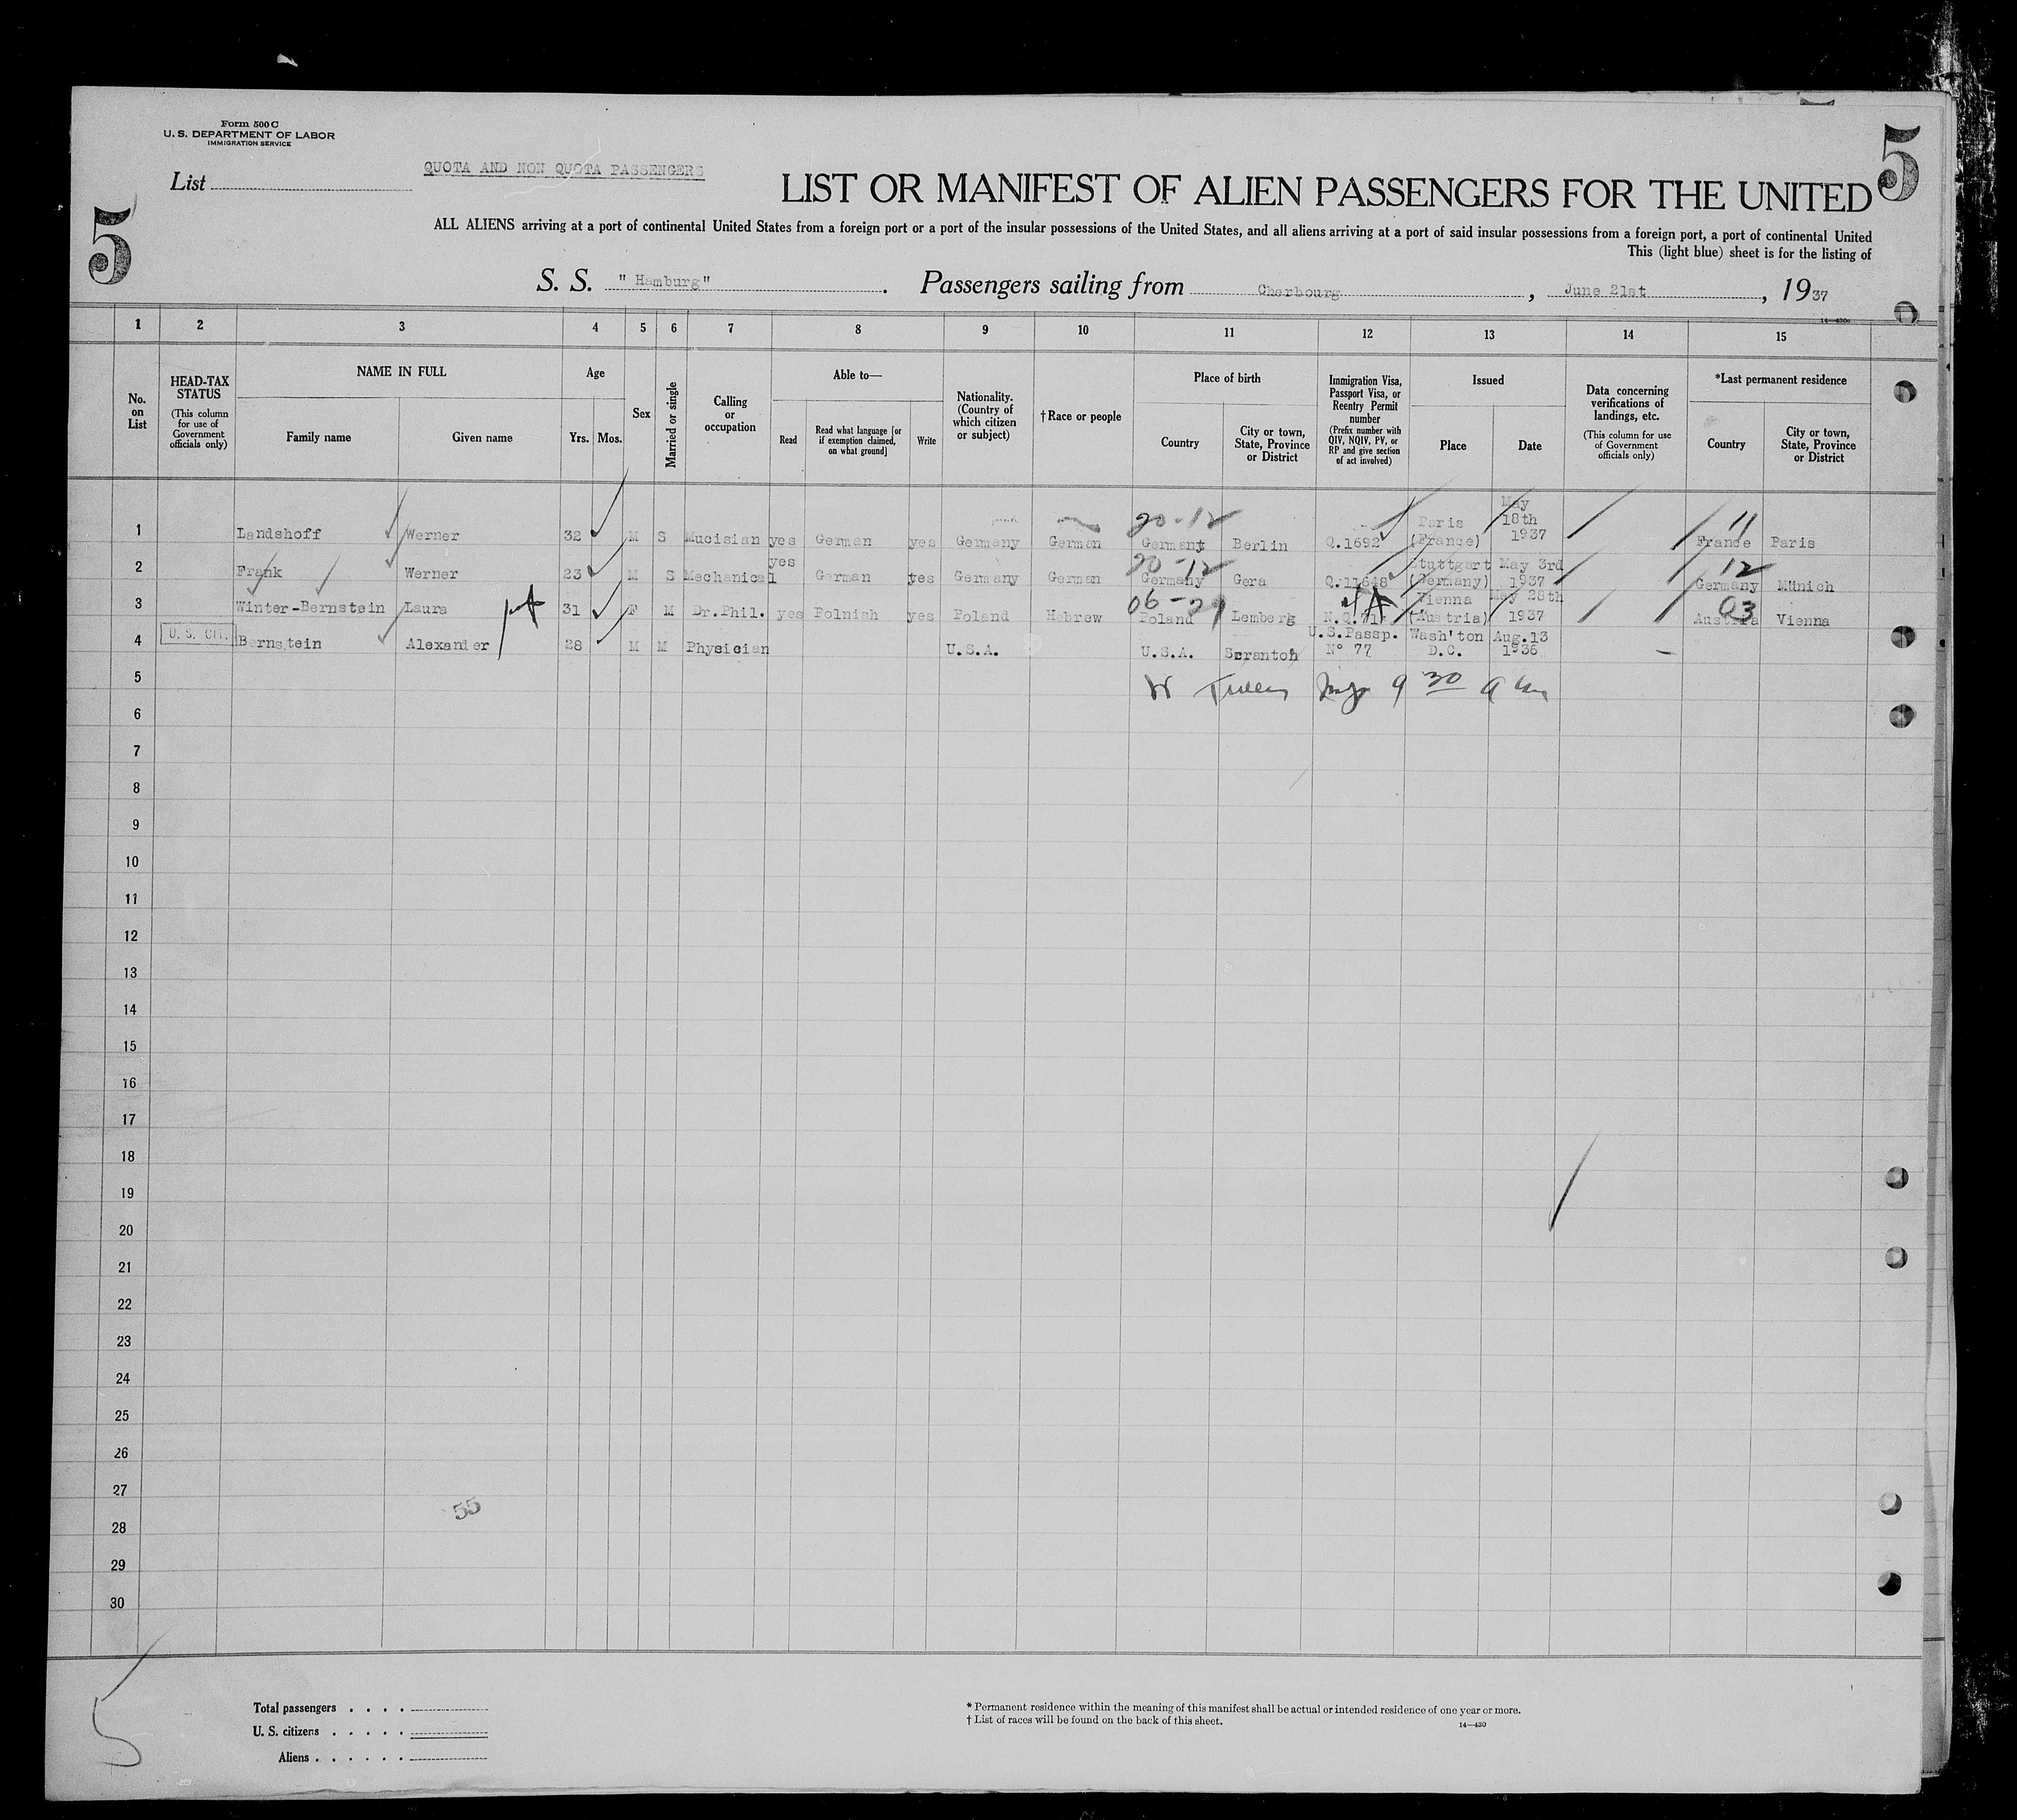 Form 500 C
U. S. DEPARTMENT OF LABOR
IMMIGRATION SERVICE
List
QUOTA AND NON QUOTA PASSENGERS
5
5
LIST OR MANIFEST OF ALIEN PASSENGERS FOR THE UNITED
ALL ALIENS arriving at a port of continental United States from a foreign port or a port of the insular possessions of the United States, and all aliens arriving at a port of said insular possessions from a foreign port, a port of continental United
This (light blue) sheet is for the listing of
S. S. "Hamburg". Passengers sailing from Cherbourg, June 21st, 1937
14—430c
1 2 3 4 5 6 7 8 9 10 11 12 13 14 15
No. on List
HEAD-TAX STATUS
(This column for use of Government officials only)
NAME IN FULL
Family name Given name
Age
Yrs. Mos.
Sex
Married or single
Calling or occupation
Able to—
Read
Read what language [or if exemption claimed, on what ground]
Write
Nationality. (Country of which citizen or subject)
†Race or people
Place of birth
Country
City or town, State, Province or District
Immigration Visa, Passport Visa, or Reentry Permit number
(Prefix number with QIV, NQIV, PV, or RP and give section of act involved)
Issued
Place Date
Data concerning verifications of landings, etc.
(This column for use of Government officials only)
*Last permanent residence
Country
City or town, State, Province or District
20-12 11
1 Landshoff Werner 32 M S Mucisian yes German yes Germany German Germany Berlin Q.1692 Paris (France) May 18th 1937 France Paris
20-12 12
2 Frank Werner 23 M S Mechanical yes German yes Germany German Germany Gera Q.11648 Stuttgart (Germany) May 3rd 1937 Germany Münich
06-29 03
3 Winter-Bernstein Laura 31 F M Dr.Phil. yes Polnish yes Poland Hebrew Poland Lemberg N.Q.71 Vienna (Austria) May 28th 1937 Austria Vienna
4 U. S. CIT. Bernstein Alexander 28 M M Physician U.S.A. U.S.A. Scranton U.S.Passp. N° 77 Wash'ton D.C. Aug.13 1936 —
5 9 30 a m
6
7
8
9
10
11
12
13
14
15
16
17
18
19
20
21
22
23
24
25
26
27
55
28
29
30
5
Total passengers . . . .
U. S. citizens . . . . .
Aliens . . . . . .
* Permanent residence within the meaning of this manifest shall be actual or intended residence of one year or more.
† List of races will be found on the back of this sheet.
14—430